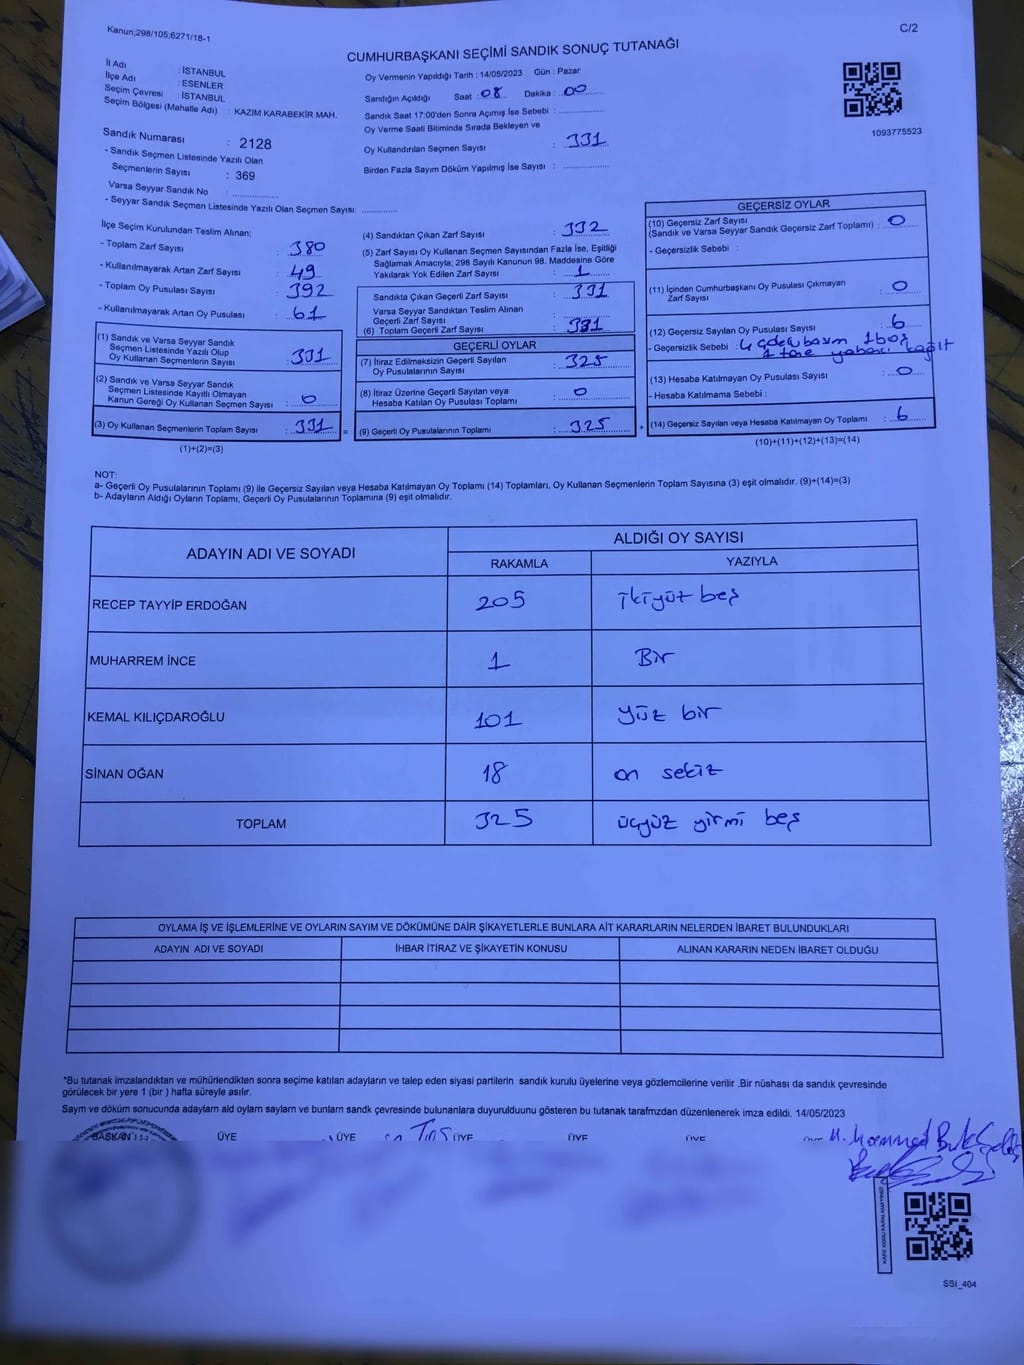 Kanun;298/105;6271/18-1
C/2
CUMHURBAŞKANI SEÇİMİ SANDIK SONUÇ TUTANAĞI
İl Adı : İSTANBUL
İlçe Adı : ESENLER
Seçim Çevresi : İSTANBUL
Seçim Bölgesi (Mahalle Adı) : KAZIM KARABEKİR MAH.
Sandık Numarası : 2128
- Sandık Seçmen Listesinde Yazılı Olan
Seçmenlerin Sayısı : 369
Varsa Seyyar Sandık No :
- Seyyar Sandık Seçmen Listesinde Yazılı Olan Seçmen Sayısı:
Oy Vermenin Yapıldığı Tarih : 14/05/2023 Gün : Pazar
Sandığın Açıldığı Saat : 08 Dakika : 00
Sandık Saat 17:00'den Sonra Açımış İse Sebebi :
Oy Verme Saati Bitiminde Sırada Bekleyen ve
Oy Kullandırılan Seçmen Sayısı : 331
Birden Fazla Sayım Döküm Yapılmış İse Sayısı :
1093775523
İlçe Seçim Kurulundan Teslim Alınan:
- Toplam Zarf Sayısı : 380
- Kullanılmayarak Artan Zarf Sayısı : 49
- Toplam Oy Pusulası Sayısı : 392
- Kullanılmayarak Artan Oy Pusulası : 61
(1) Sandık ve Varsa Seyyar Sandık
Seçmen Listesinde Yazılı Olup
Oy Kullanan Seçmenlerin Sayısı : 331
(2) Sandık ve Varsa Seyyar Sandık
Seçmen Listesinde Kayıtlı Olmayan
Kanun Gereği Oy Kullanan Seçmen Sayısı : 0
(3) Oy Kullanan Seçmenlerin Toplam Sayısı : 331 =
(1)+(2)=(3)
(4) Sandıktan Çıkan Zarf Sayısı : 332
(5) Zarf Sayısı Oy Kullanan Seçmen Sayısından Fazla İse, Eşitliği
Sağlamak Amacıyla, 298 Sayılı Kanunun 98. Maddesine Göre
Yakılarak Yok Edilen Zarf Sayısı : 1
Sandıkta Çıkan Geçerli Zarf Sayısı : 331
Varsa Seyyar Sandıktan Teslim Alınan
Geçerli Zarf Sayısı :
(6) Toplam Geçerli Zarf Sayısı : 331
GEÇERLİ OYLAR
(7) İtiraz Edilmeksizin Geçerli Sayılan
Oy Pusulalarının Sayısı : 325
(8) İtiraz Üzerine Geçerli Sayılan veya
Hesaba Katılan Oy Pusulası Toplamı : 0
(9) Geçerli Oy Pusulalarının Toplamı : 325 +
GEÇERSİZ OYLAR
(10) Geçersiz Zarf Sayısı
(Sandık ve Varsa Seyyar Sandık Geçersiz Zarf Toplamı) : 0
- Geçersizlik Sebebi :
(11) İçinden Cumhurbaşkanı Oy Pusulası Çıkmayan
Zarf Sayısı : 0
(12) Geçersiz Sayılan Oy Pusulası Sayısı : 6
- Geçersizlik Sebebi : 4 adet basım 1 boş
1 tane yabancı kağıt
(13) Hesaba Katılmayan Oy Pusulası Sayısı : 0
- Hesaba Katılmama Sebebi :
(14) Geçersiz Sayılan veya Hesaba Katılmayan Oy Toplamı : 6
(10)+(11)+(12)+(13)=(14)
NOT:
a- Geçerli Oy Pusulalarının Toplamı (9) ile Geçersiz Sayılan veya Hesaba Katılmayan Oy Toplamı (14) Toplamları, Oy Kullanan Seçmenlerin Toplam Sayısına (3) eşit olmalıdır. (9)+(14)=(3)
b- Adayların Aldığı Oyların Toplamı, Geçerli Oy Pusulalarının Toplamına (9) eşit olmalıdır.
ADAYIN ADI VE SOYADI
ALDIĞI OY SAYISI
RAKAMLA YAZIYLA
RECEP TAYYİP ERDOĞAN 205 ikiyüz beş
MUHARREM İNCE 1 Bir
KEMAL KILIÇDAROĞLU 101 yüz bir
SİNAN OĞAN 18 on sekiz
TOPLAM 325 üçyüz yirmi beş
OYLAMA İŞ VE İŞLEMLERİNE VE OYLARIN SAYIM VE DÖKÜMÜNE DAİR ŞİKAYETLERLE BUNLARA AİT KARARLARIN NELERDEN İBARET BULUNDUKLARI
ADAYIN ADI VE SOYADI İHBAR İTİRAZ VE ŞİKAYETİN KONUSU ALINAN KARARIN NEDEN İBARET OLDUĞU
*Bu tutanak imzalandıktan ve mühürlendikten sonra seçime katılan adayların ve talep eden siyasi partilerin sandık kurulu üyelerine veya gözlemcilerine verilir .Bir nüshası da sandık çevresinde
görülecek bir yere 1 (bir ) hafta süreyle asılır.
Sayım ve döküm sonucunda adayların ald oyların saylarn ve bunlarn sandk çevresinde bulunanlara duyurulduunu gösteren bu tutanak tarafmzdan düzenlenerek imza edildi. 14/05/2023
BAŞKAN ÜYE ÜYE ÜYE ÜYE ÜYE ÜYE
SSI_404